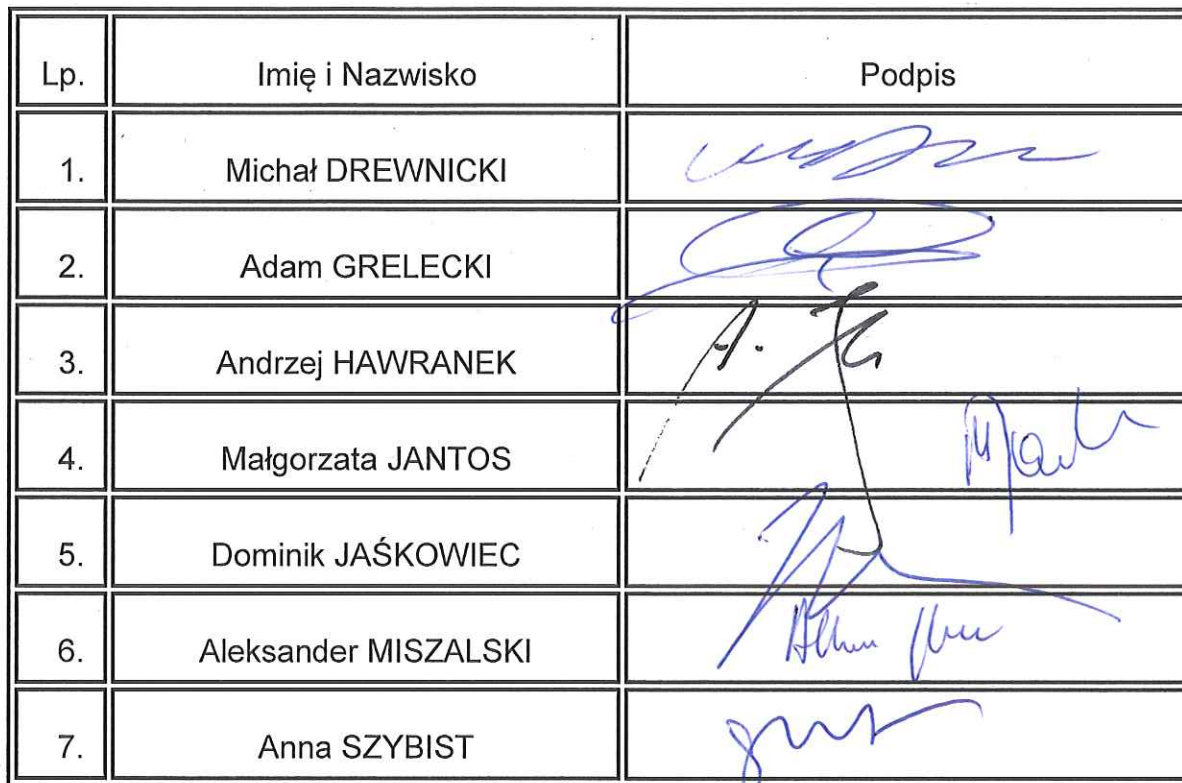 Lp. Imię i Nazwisko Podpis
1. Michał DREWNICKI
2. Adam GRELECKI
3. Andrzej HAWRANEK
4. Małgorzata JANTOS
5. Dominik JAŚKOWIEC
6. Aleksander MISZALSKI
7. Anna SZYBIST